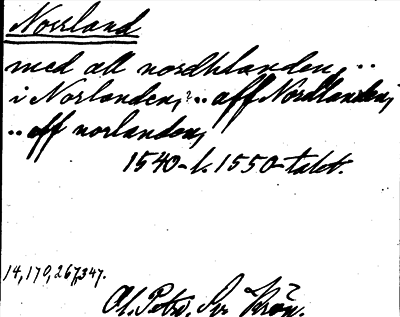 Norrland
med all nordhlanden, ..
i Norlanden, .. aff Nordlanden,
.. aff norlanden,
1540-t. 1550-talet.
14, 170, 267, 347.
Ol. Petri, Sv. Krön.